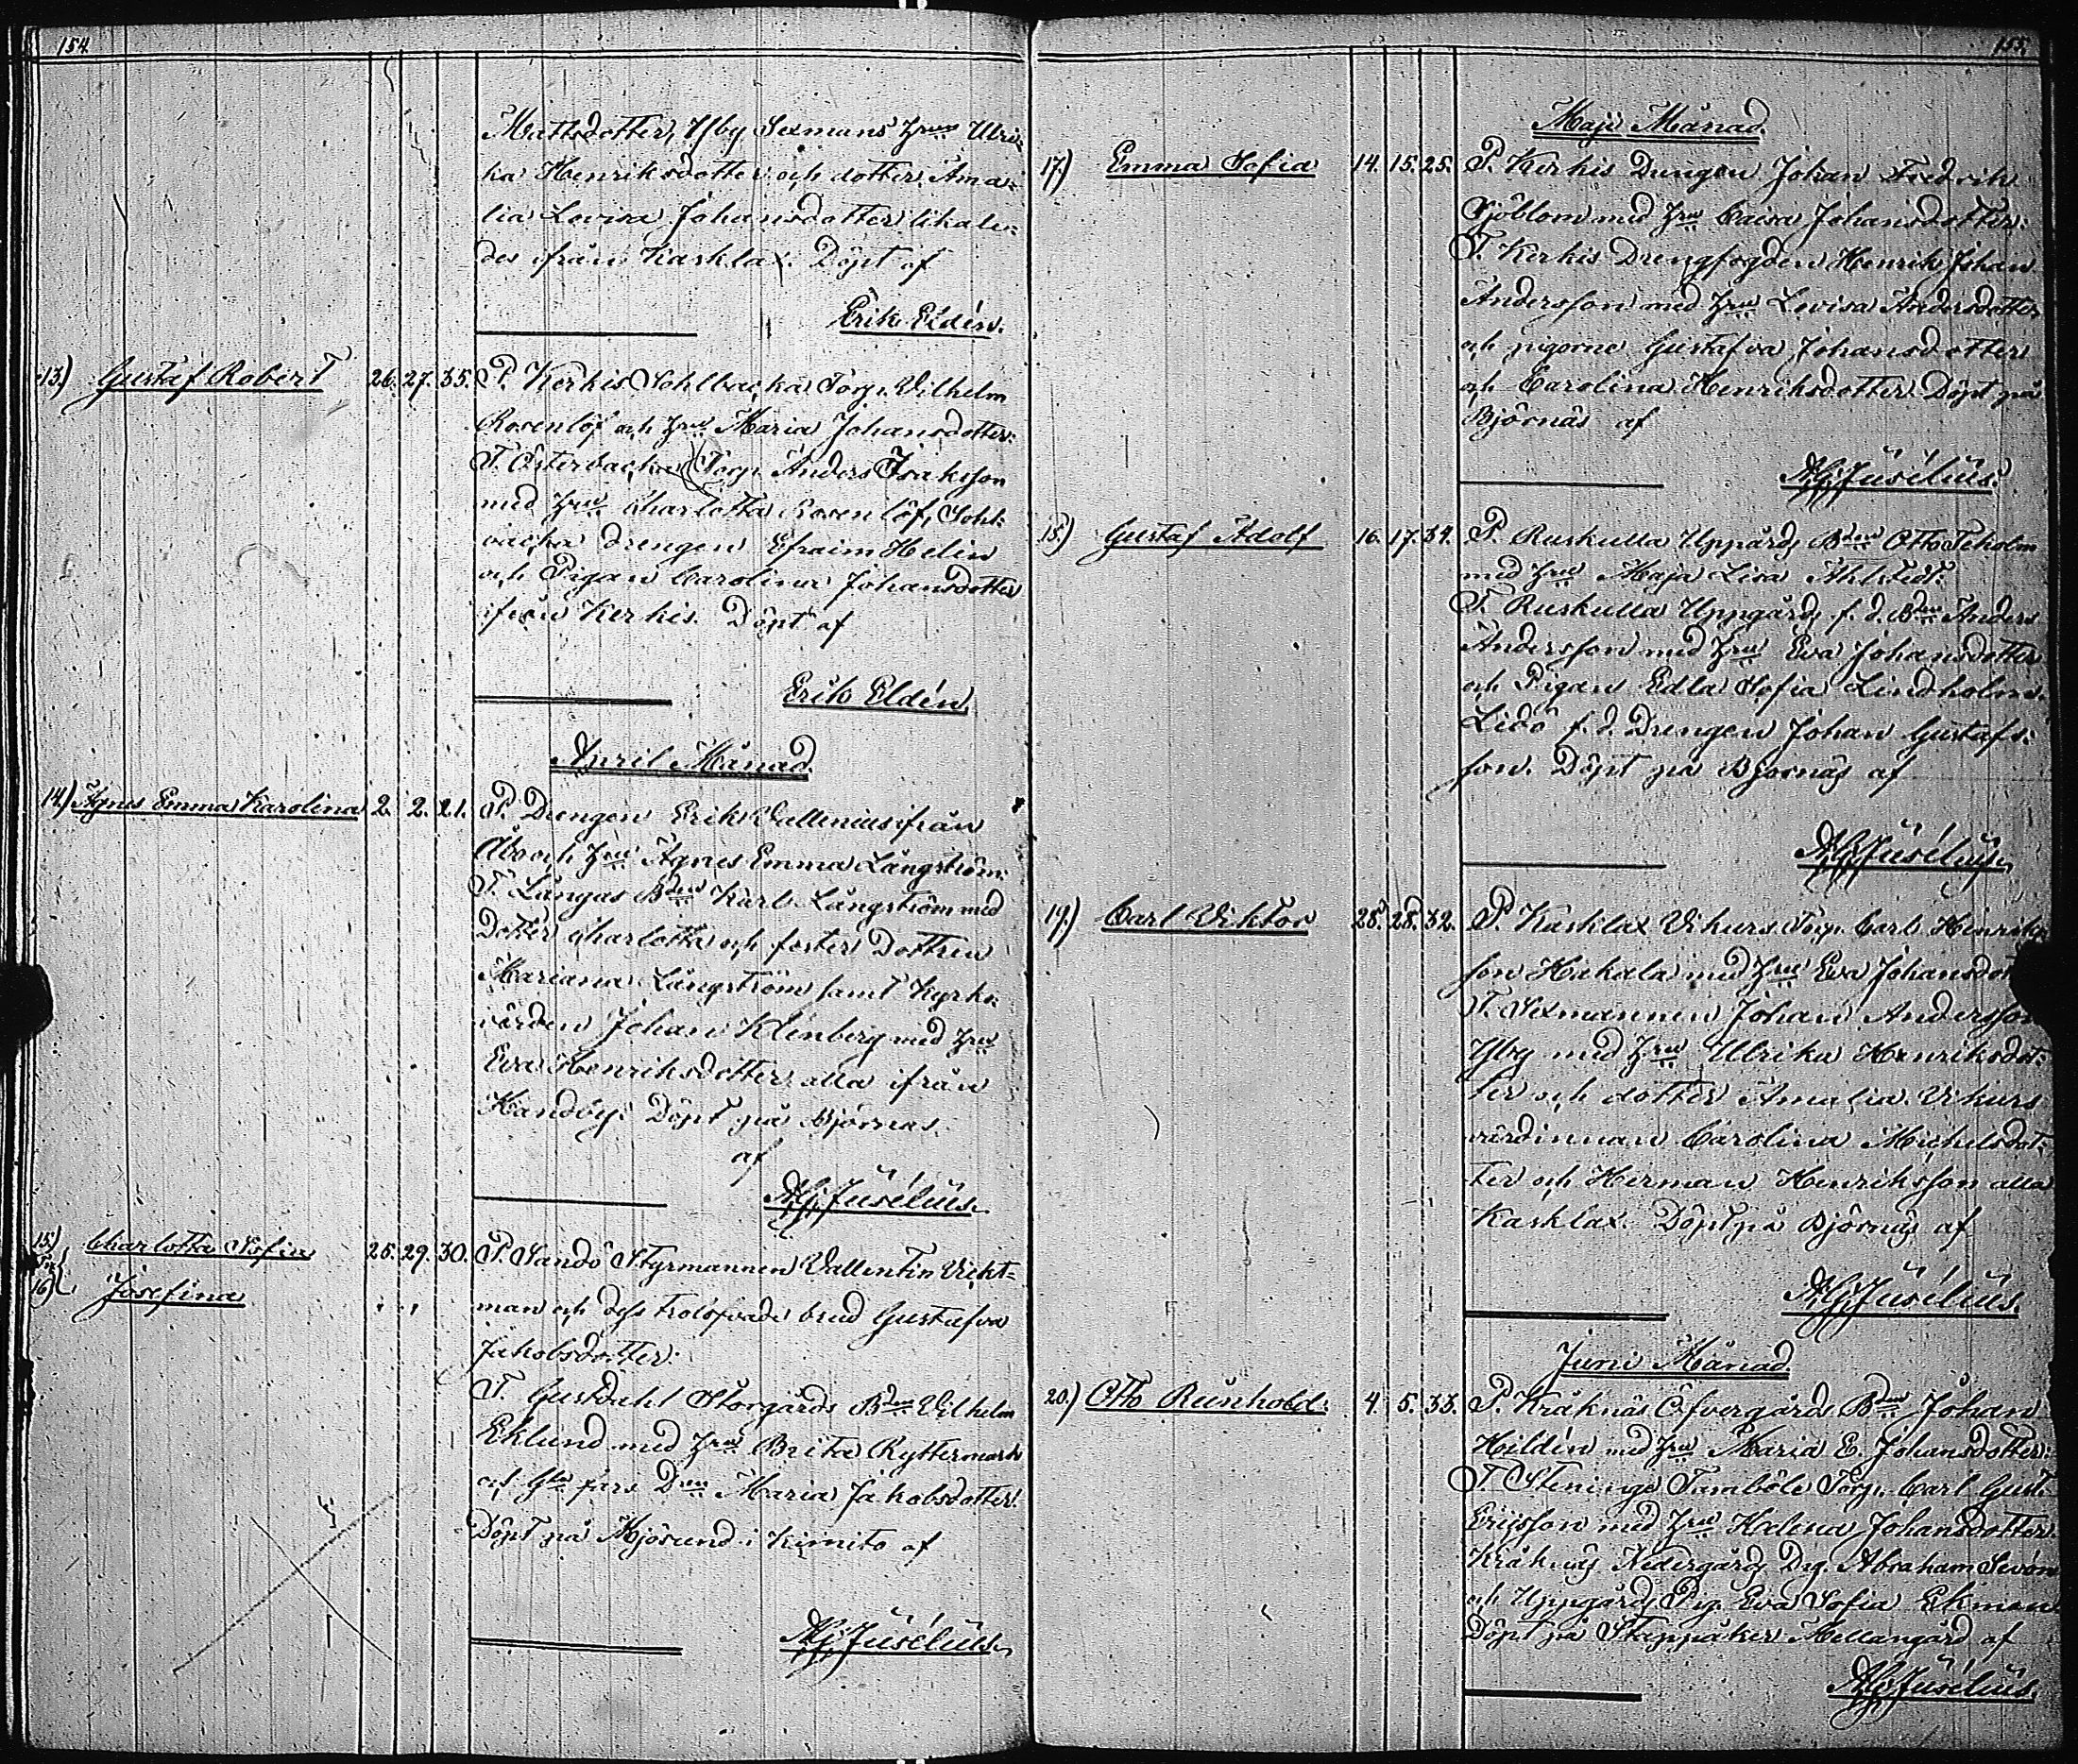 154.
Mattsdotter, Yby Sexmans hru Ulri-
ka Henriksdotter och dotter Ama-
lia Lovisa Johansdotter likale-
des ifrån Karklax. Döpt af
Erik Eldén.
13.) Gustaf Robert 26. 27. 35. P. Kerkis Sohlbacka Torp. Vilhelm
Rosenlöf och hru Maria Johansdotter:
T. Österbacka Torp. Anders Isaksson
med hru Charlotta Rosenlöf, Sohl-
backa drengen Efraim Helin
och Pigan Carolina Johansdotter
ifrån Kerkis. Döpt af
Erik Eldén.
April Månad.
14.) Agnes Emma Karolina 2. 2. 21. P. Drengen Erik Vallenius ifrån
Åbo och hru Agnes Emma Långström:
T. Långas Bden Karl Långström med
Dotter Charlotta och foster Dottren
Mariana Långström samt Kyrko-
värden Johan Klinberg med hru
Eva Henriksdotter alla ifrån
Kandby. Döpt på Björnäs
af
A.G. Jusélius.
15.) Charlotta Sofia 28. 29. 30. P. Sandö Styrmannen Vallentin Vickt-
16.) Josefina , , man och dess trolofvade brud Gustafva
Jakobsdotter:
T. Gustdahl Storgårds Bden Vilhelm
Eklund med hru Brita Ryttermark
och Gla fars Drn Maria Jakobsdotter.
Döpt på Mjösund i Kimito af
A.G. Jusélius.
155.
Maji Månad.
17.) Emma Sofia 14. 15. 25. P. Kerkis Drengen Johan Fredrik
Sjöblom med hru Caisa Johansdotter:
T. Kerkis Drengfogden Henrik Johan
Andersson med hru Lovisa Andersdotter
och pigorne Gustafva Johansdotter
och Carolina Henriksdotter. Döpt på
Björnäs af
A.G. Jusélius.
18.) Gustaf Adolf 16. 17. 34. P. Ruskulla Uppgårds Bden Otto Teholm
med hru Maja Lisa Ahlstedt.
T. Ruskulla Uppgårds f. d. Bden Anders
Andersson med hru Eva Johansdotter
och Pigan Edla Sofia Lindholm.
Lidö f. d. Drengen Johan Gustafs-
son. Döpt på Björnäs af
A.G. Jusélius.
19.) Carl Viktor 28. 28. 32. P. Karklax Vikurs Torp. Carl Henriks-
son Hakala med hru Eva Johansdot
T. Sexmannen Johan Andersson
Yby med hru Ulrika Henriksdot-
ter och dotter Amalia. Vikurs
värdinnan Carolina Michelsdot-
ter och Herman Henriksson alla
Karklax. Döpt på Björnäs af
A.G. Jusélius.
Juni Månad.
20.) Otto Reinhold. 4. 5. 33. P. Kråknäs Öfvergårds Bden Johan
Hildén med hru Maria E. Johansdotter:
T. Steninge Tamböle Torp. Carl Gust.
Ericsson med hru Helena Johansdotter.
Kråknäs Nedergårds Drg. Abraham Sevón
och Uppgårds Pig. Eva Sofia Ekman
Döpt på Skeppåker Mellangård af
A.G. Jusélius.